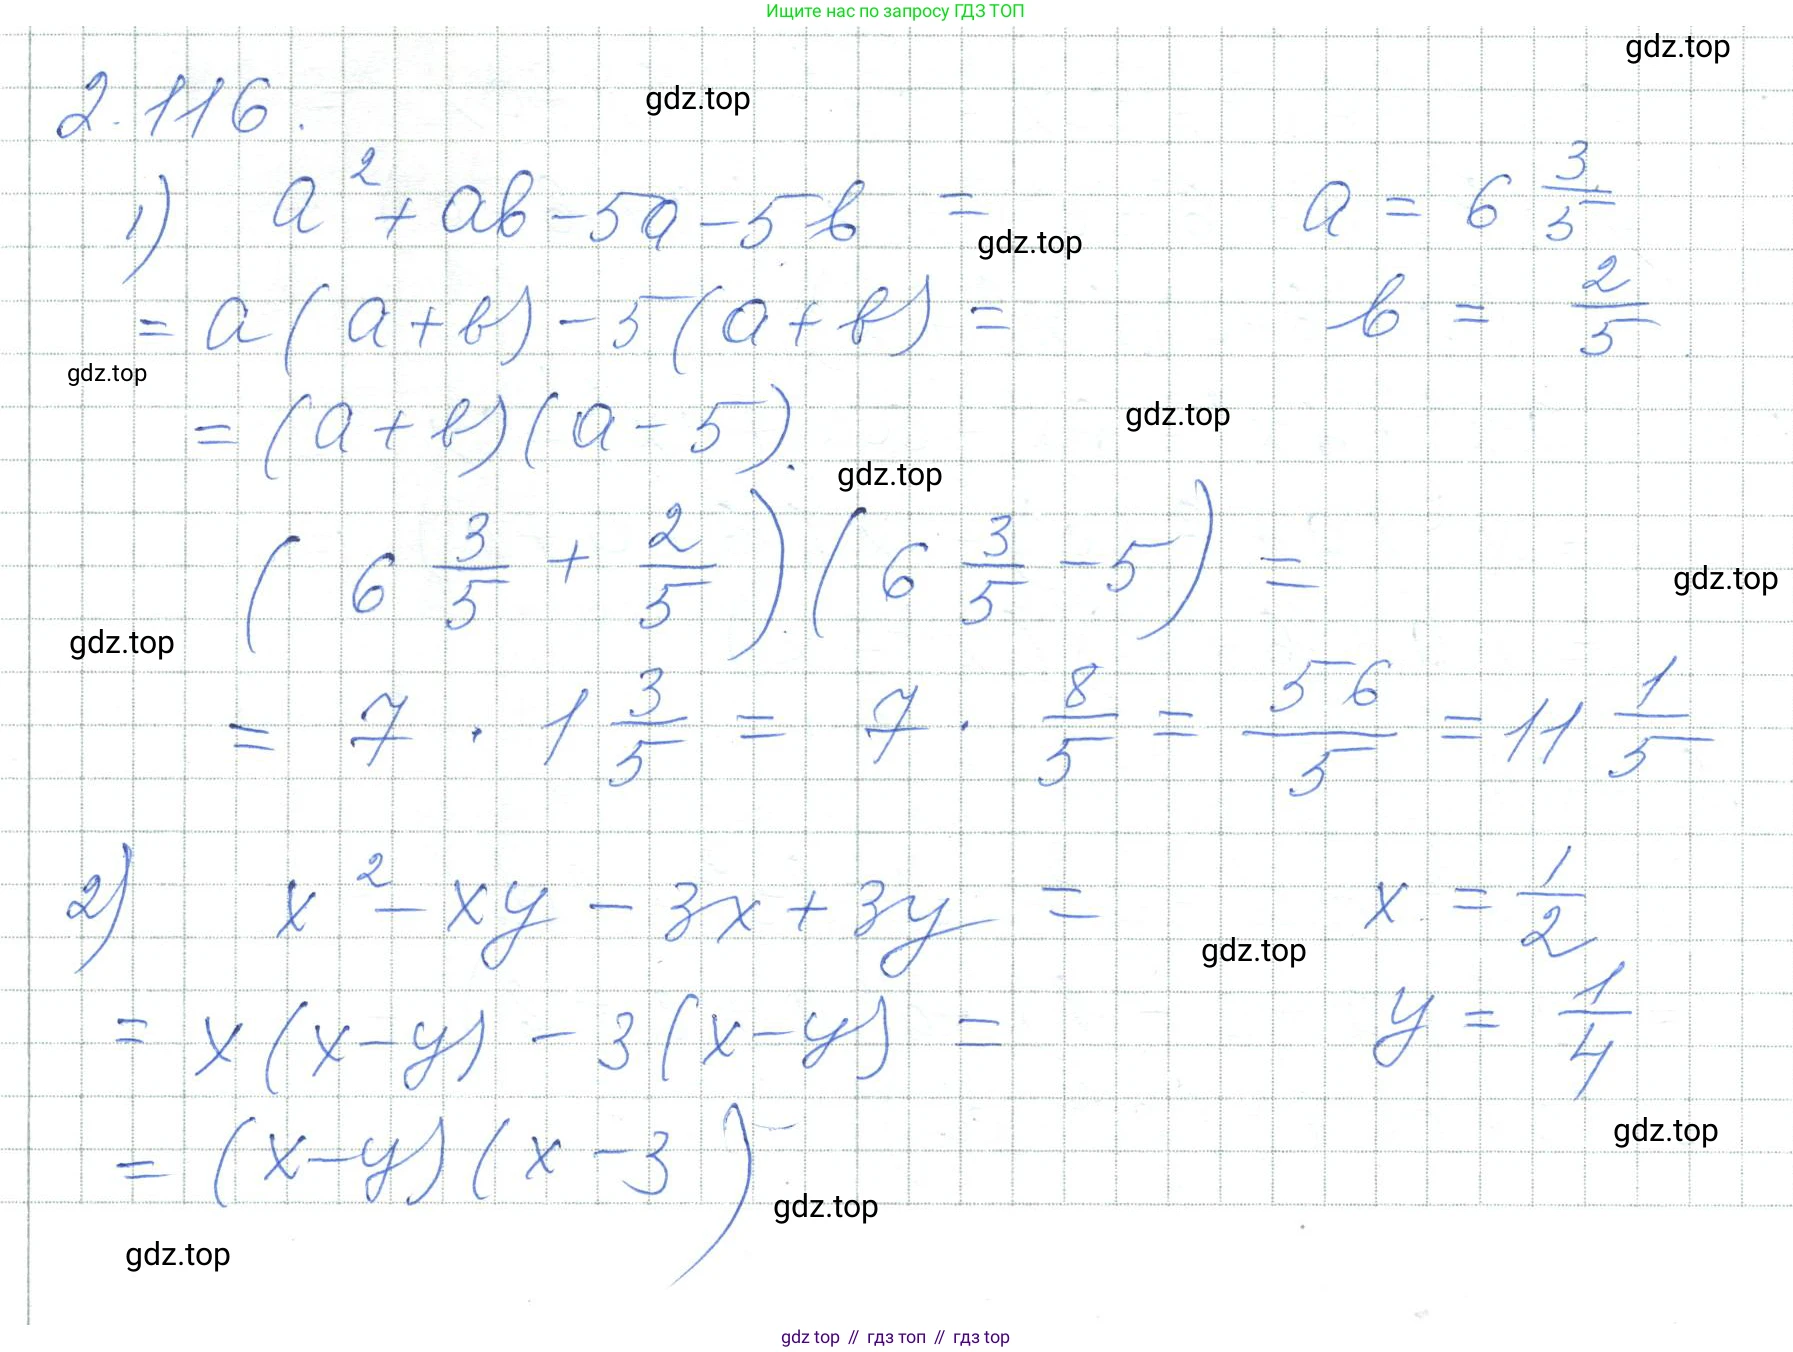 Ищите нас по запросу ГДЗ ТОП
gdz.top
2.116.
gdz.top
1) a² + ab - 5a - 5b = a = 6 3/5
gdz.top
= a(a+b) - 5(a+b) = b = 2/5
gdz.top
= (a+b)(a-5).
gdz.top
gdz.top
(6 3/5 + 2/5)(6 3/5 - 5) =
gdz.top
gdz.top
= 7 · 1 3/5 = 7 · 8/5 = 56/5 = 11 1/5
2) x² - xy - 3x + 3y = x = 1/2
gdz.top
= x(x-y) - 3(x-y) = y = 1/4
gdz.top
= (x-y)(x-3)
gdz.top
gdz.top
gdz top // гдз топ // гдз top